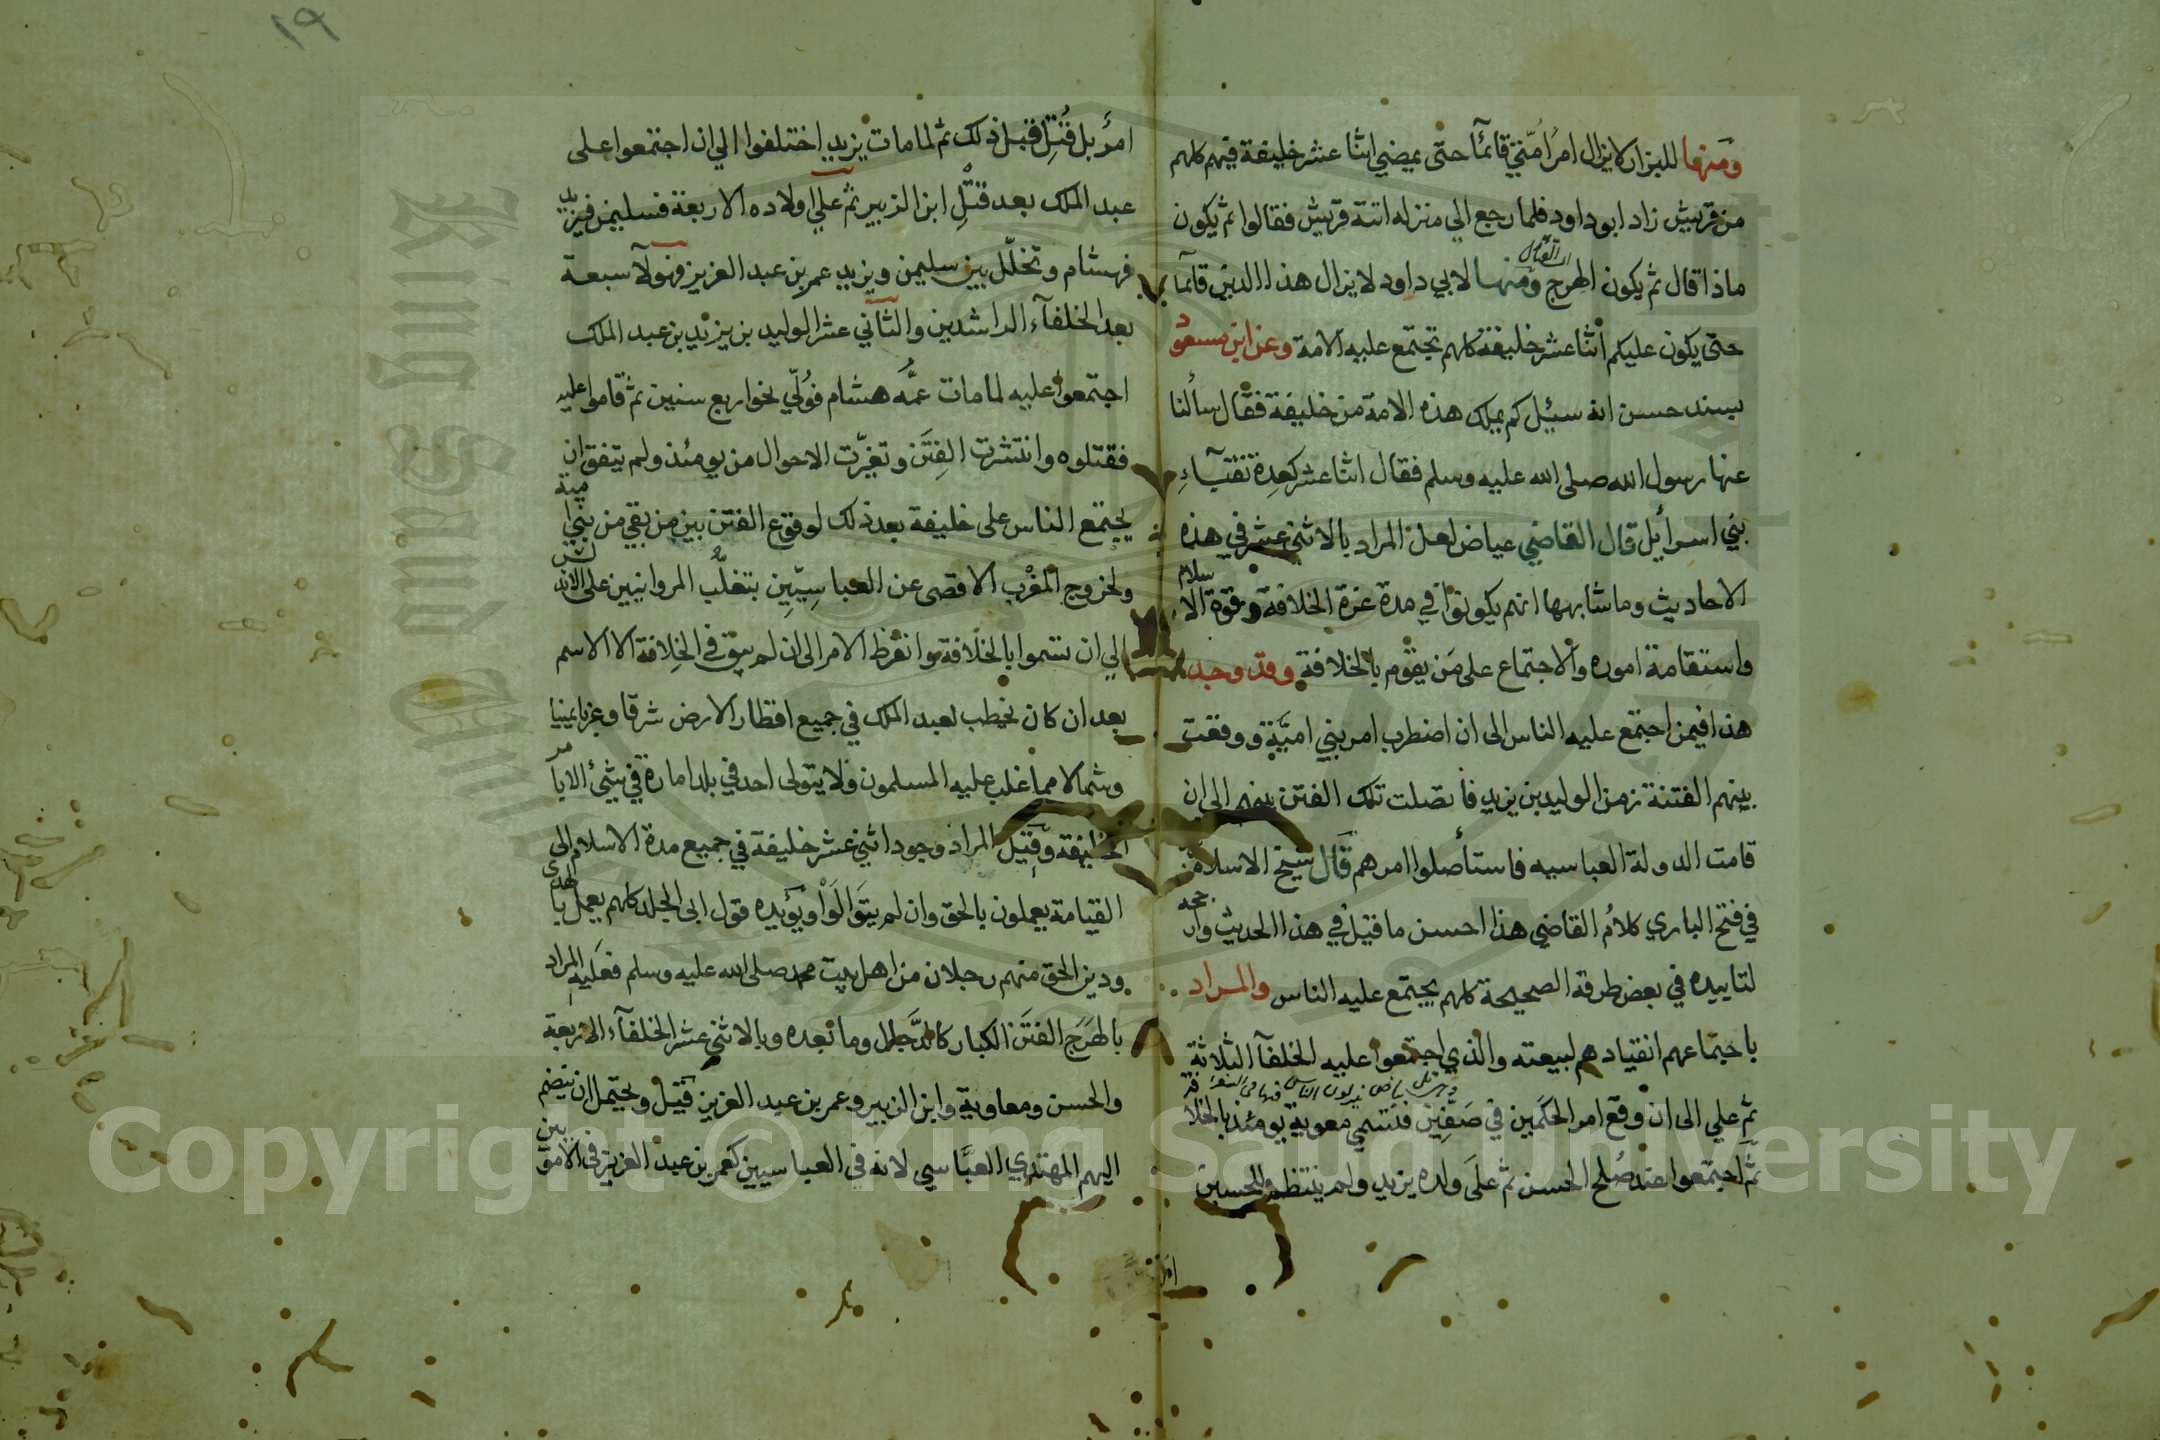 ومنها للبزار لا يزال امر امتي قائما حتى يمضي اثنا عشر خليفة فيهم كلهم
من قريش زاد ابو داود فلما رجع الي منزله اتته قريش فقالوا ثم يكون
ماذا قال ثم يكون الهرج ومنها لابي داود لا يزال هذا الدين قائما
حتى يكون عليكم اثنا عشر خليفة كلهم تجتمع عليه الامة وعن ابن مسعود
بسند حسن انه سئل كم يملك هذه الامة من خليفة فقال سألنا
عنها رسول الله صلى الله عليه وسلم فقال اثنا عشر كعدة نقباء
بني اسرايل قال القاضي عياض لعل المراد بالاثني عشر في هذه
الاحاديث وما شابهها انهم يكونوا في مدة عزة الخلافة وقوة الاسلام
واستقامة اموره والاجتماع على من يقوم بالخلافة وقد وجد
هذا فيمن اجتمع عليه الناس الى ان اضطرب امر بني امية ووقعت
بينهم الفتنة زمن الوليد بن يزيد فاتصلت تلك الفتن بينهم الي ان
قامت الدولة العباسيه فاستأصلوا امرهم قال شيخ الاسلام
في فتح الباري كلام القاضي هذا احسن ما قيل في هذا الحديث وارجحه
لتاييده في بعض طرقه الصحيحة كلهم يجتمع عليه الناس والمراد
باجتماعهم انقيادهم لبيعته والذي اجتمعوا عليه الخلفآ الثلاثة
ثم علي الى ان وقع امر الحكمين في صفين فتسمي معوية يومئذ بالخلافة
ثم اجتمعوا عند صلح الحسن ثم على ولده يزيد ولم ينتظم للحسين
امر
١٩
امر بل قتل قبل ذلك ثم لما مات يزيد اختلفوا الي ان اجتمعوا على
عبد الملك بعد قتل ابن الزبير ثم على اولاده الاربعة فسليمن فيزيد
فهشام وتخلل بين سليمن ويزيد عمر بن عبد العزيز فهولآ سبعة
بعد الخلفآء الراشدين والثاني عشر الوليد بن يزيد بن عبد الملك
اجتمعوا عليه لما مات عمه هشام فولي نحو اربع سنين ثم قاموا عليه
فقتلوه وانتشرت الفتن وتغيرت الاحوال من يومئذ ولم يتفق ان
يجتمع الناس على خليفة بعد ذلك لوقوع الفتن بين من بقي من بني امية
ولخروج المغرب الاقصى عن العباسيين بتغلب المروانيين على الاندلس
الي ان تسموا بالخلافة وانفرط الامر الى ان لم يبق في الخلافة الا الاسم
بعد ان كان يخطب لعبد الملك في جميع اقطار الارض شرقا وغربا يمينا
وشمالا مما غلب عليه المسلمون ولا يتولى احد في بلد امارة في شيء الا بأمر
الخليفة وقيل المراد وجود اثني عشر خليفة في جميع مدة الاسلام الى
القيامة يعملون بالحق وان لم يتوالوا ويؤيده قول ابي الجلد كلهم يعمل بالهدى
ودين الحق منهم رجلان من اهل بيت محمد صلى الله عليه وسلم فعليه المراد
بالهرج الفتن الكبار كالدجال وما بعده وبالاثني عشر الخلفآء الاربعة
والحسن ومعاوية وابن الزبير وعمر بن عبد العزيز قيل ويحتمل ان ينضم
اليهم المهتدي العباسي لانه في العباسيين كعمر بن عبد العزيز في الامويين
King Saud University
Copyright © King Saud University